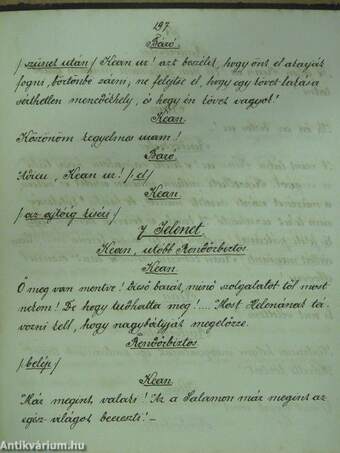 197.
Báró.
/szünet után/ Kean ur! azt beszélik, hogy önt el akarják
fogni, börtönbe zárni, ne felejtse el, hogy egy követ lakása
sérthetlen menedékhely, és hogy én követ vagyok!
Kean.
Köszönöm kegyelmes uram!
Báró.
Isten, Kean ur! /el/
Kean.
/az ajtóig kiséri/
7 Jelenet.
Kean, utóbb Rendőrbiztos
Kean.
Ő meg van mentve! Derék barát, minő szolgálatot től most
nekem! De hogy tudhatta meg!.... Most Helenának tá-
vozni kell, hogy nagybátyját megelőzze.
Rendőrbiztos
/belép/
Kean.
Már megint valaki! Az a Salamon már megint az
egész világot beereszti! —
Antikvárium.hu